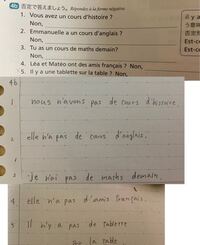 4b 否定で答えましょう。 Répondez à la forme négative
1. Vous avez un cours d'histoire ?
Non,
2. Emmanuelle a un cours d'anglais ?
Non,
3. Tu as un cours de maths demain?
Non,
4. Léa et Matéo ont des amis français ? Non,
5. Il y a une tablette sur la table ? Non,
il y a
否定形
Est-c
Est-ce
4b
1 nous n'avons pas de cours d'histoire.
2 elle n'a pas de cours d'anglais.
3 je n'ai pas de maths demain.
4 elle n'a pas d'amis français.
5 Il n'y a pas de tablette
sur la table.